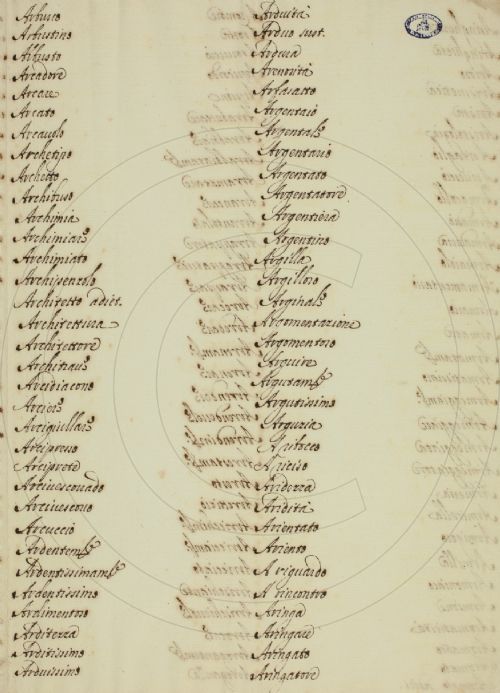 Arbuto
Arbustino
Arbusto
Arcadore
Arcare
Arcato
Arcavolo
Archetipo
Archetto
Archibuso
Archimia
Archimiare
Archimiato
Architetto adiet.
Architettura
Architettore
Arcidiacono
Arcigiullare
Arcipresso
Arciprete
Arcivescovado
Arcivescovo
Arcuccio
Ardentemte
Ardentissimamte
Ardentissimo
Ardimentoso
Arditezza
Arditissimo
Arduissimo
Arduità
Arduo sust.
Argentaio
Argentale
Argentario
Argentato
Argentatore
Argentiera
Argentino
Argilla
Argilloso
Argomentazione
Argomentoso
Arguire
Argutamte
Argutissimo
Arguzia
Aridezza
Aridità
Arientato
Ariento
A riguardo
A rincontro
Aringa
Aringare
Aringato
Aringatore